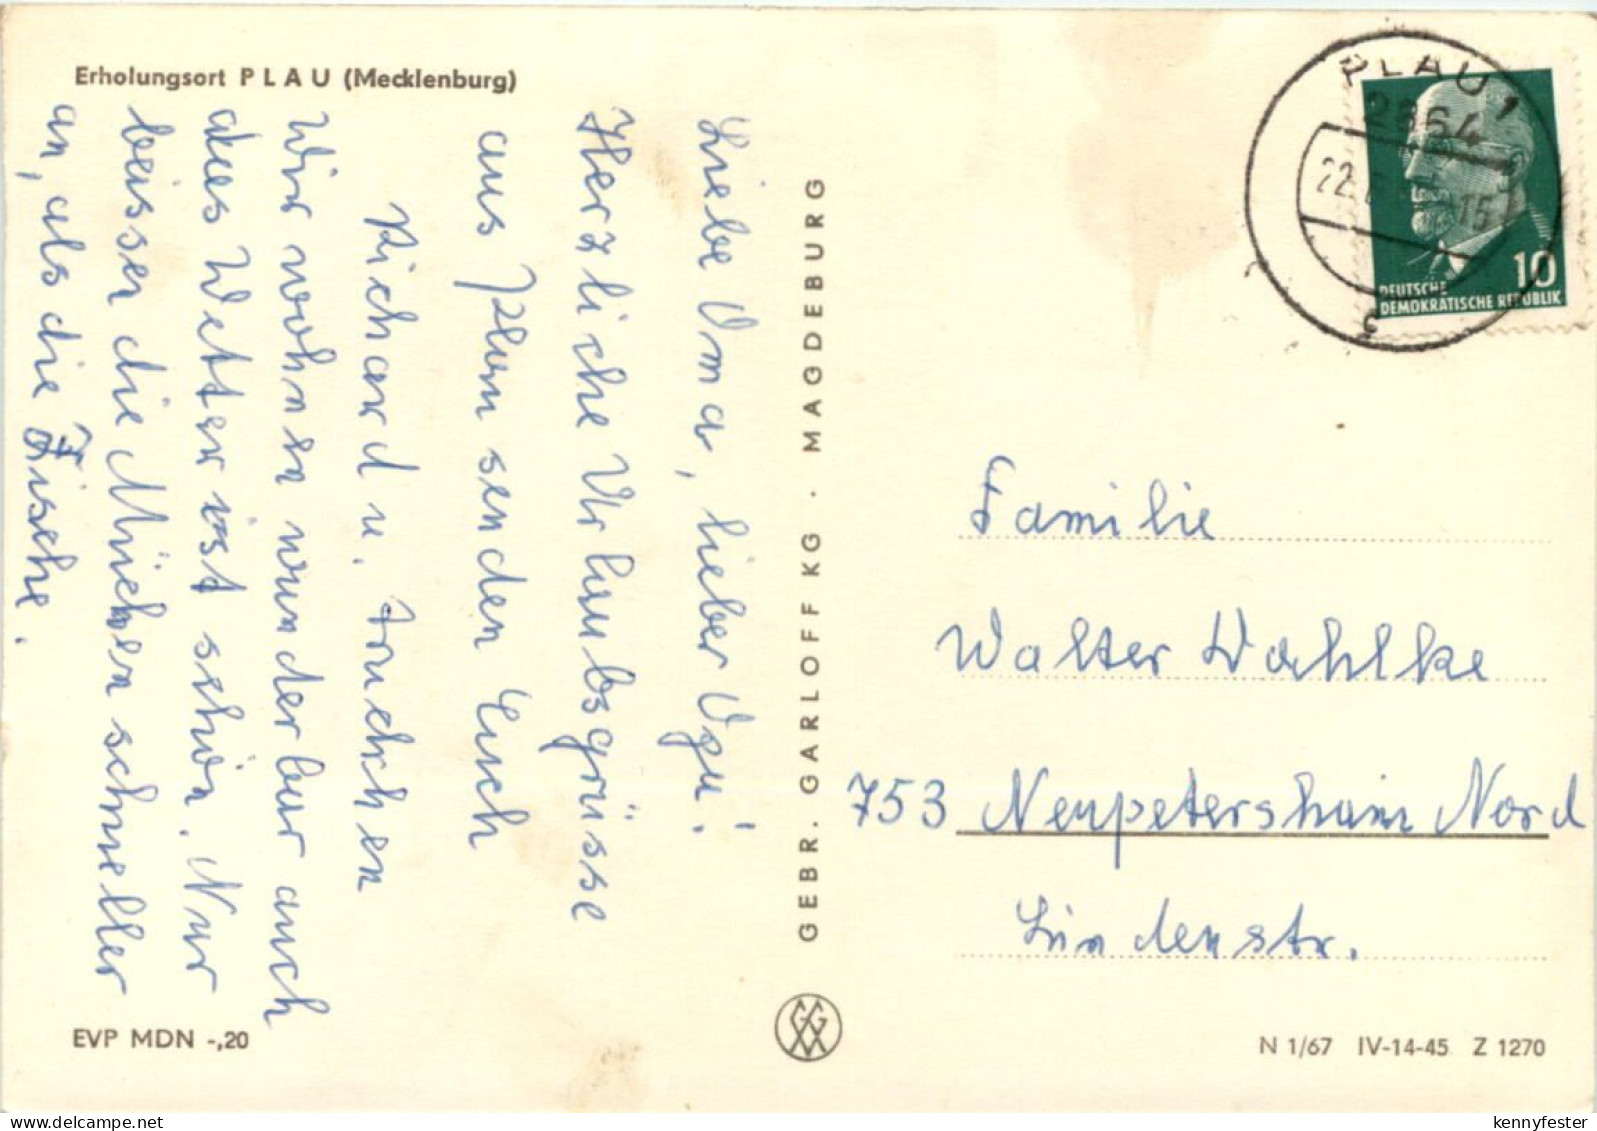 Erholungsort PLAU (Mecklenburg)
Liebe Oma, lieber Opa!
Herzliche Urlaubsgrüsse
aus Plau senden Euch
Richard u. Truchen
Wir wohnen wunderbar auch
das Wetter ist schön. Nur
beissen die Mücken schneller
an, als die Fische.
EVP MDN -,20
GEBR. GARLOFF KG · MAGDEBURG
PLAU 1
2864
22.
15
c
10
DEUTSCHE
DEMOKRATISCHE REPUBLIK
Familie
Walter Dahlke
753 Neupetershain Nord
Lindenstr.
N 1/67 IV-14-45 Z 1270
kennyfester